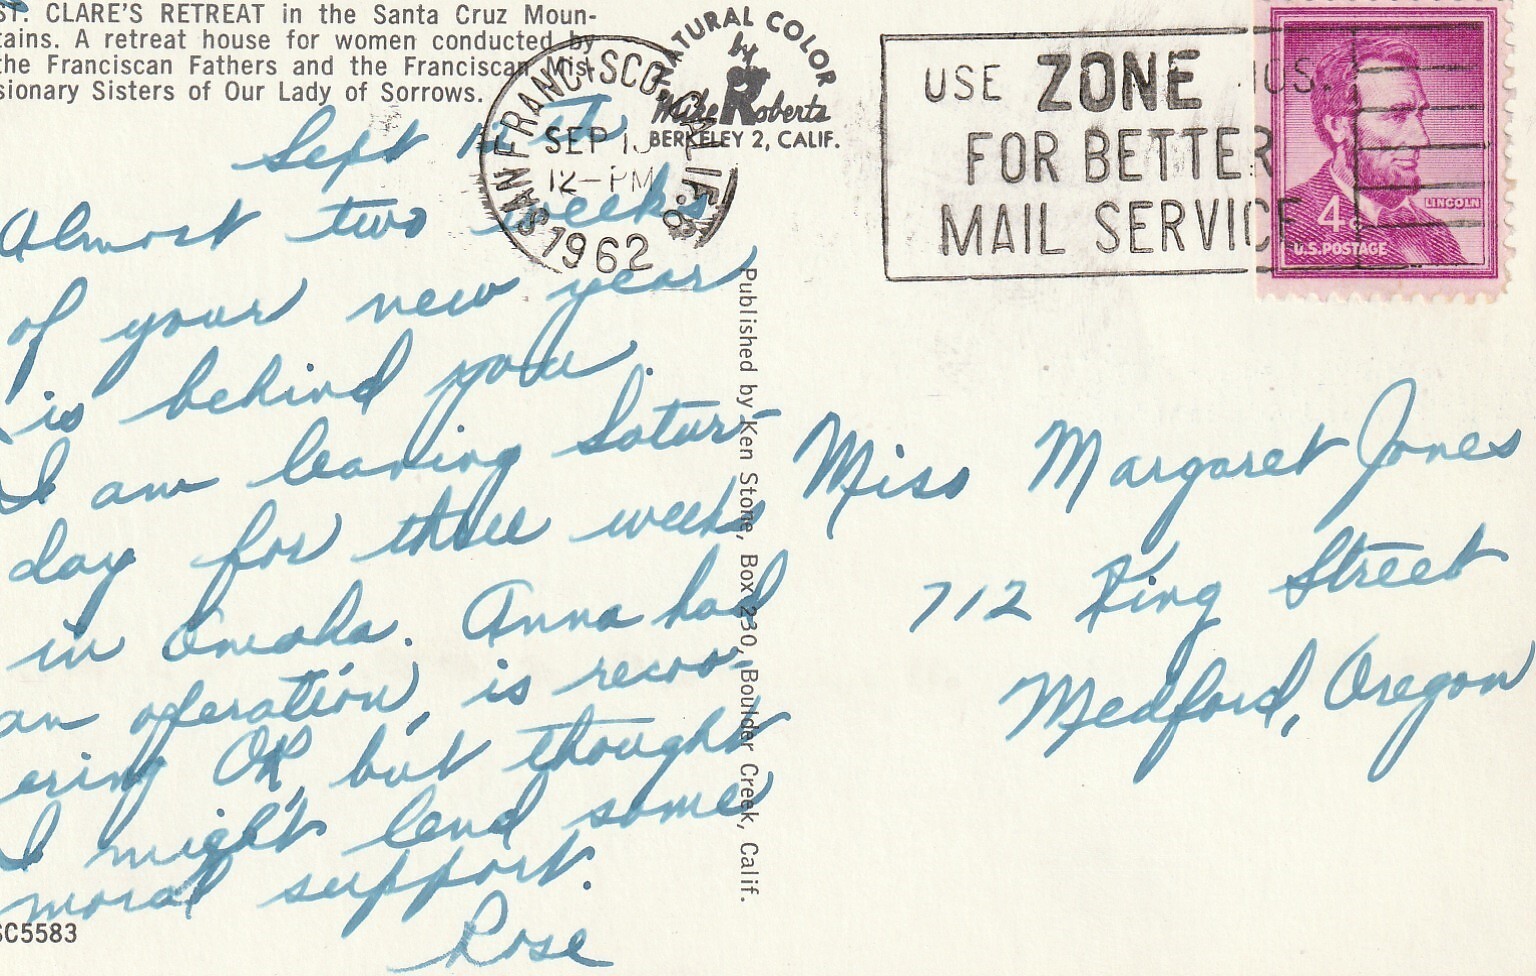 ST. CLARE'S RETREAT in the Santa Cruz Moun-
tains. A retreat house for women conducted by
the Franciscan Fathers and the Franciscan Mis-
sionary Sisters of Our Lady of Sorrows.
NATURAL COLOR
by
Mike Roberts
BERKELEY 2, CALIF.
SAN FRANCISCO, CALIF.
SEP 1
12-PM
1962
USE ZONE NOS.
FOR BETTER
MAIL SERVICE
LINCOLN
4¢
U.S. POSTAGE
Sept 12th
Almost two weeks
of your new year
is behind you.
I am leaving Satur-
day for three weeks
in Omaha. Anna had
an operation, is recov-
ering OK, but thought
I might lend some
moral support.
Rose
SC5583
Published by Ken Stone, Box 230, Boulder Creek, Calif.
Miss Margaret Jones
712 King Street
Medford, Oregon